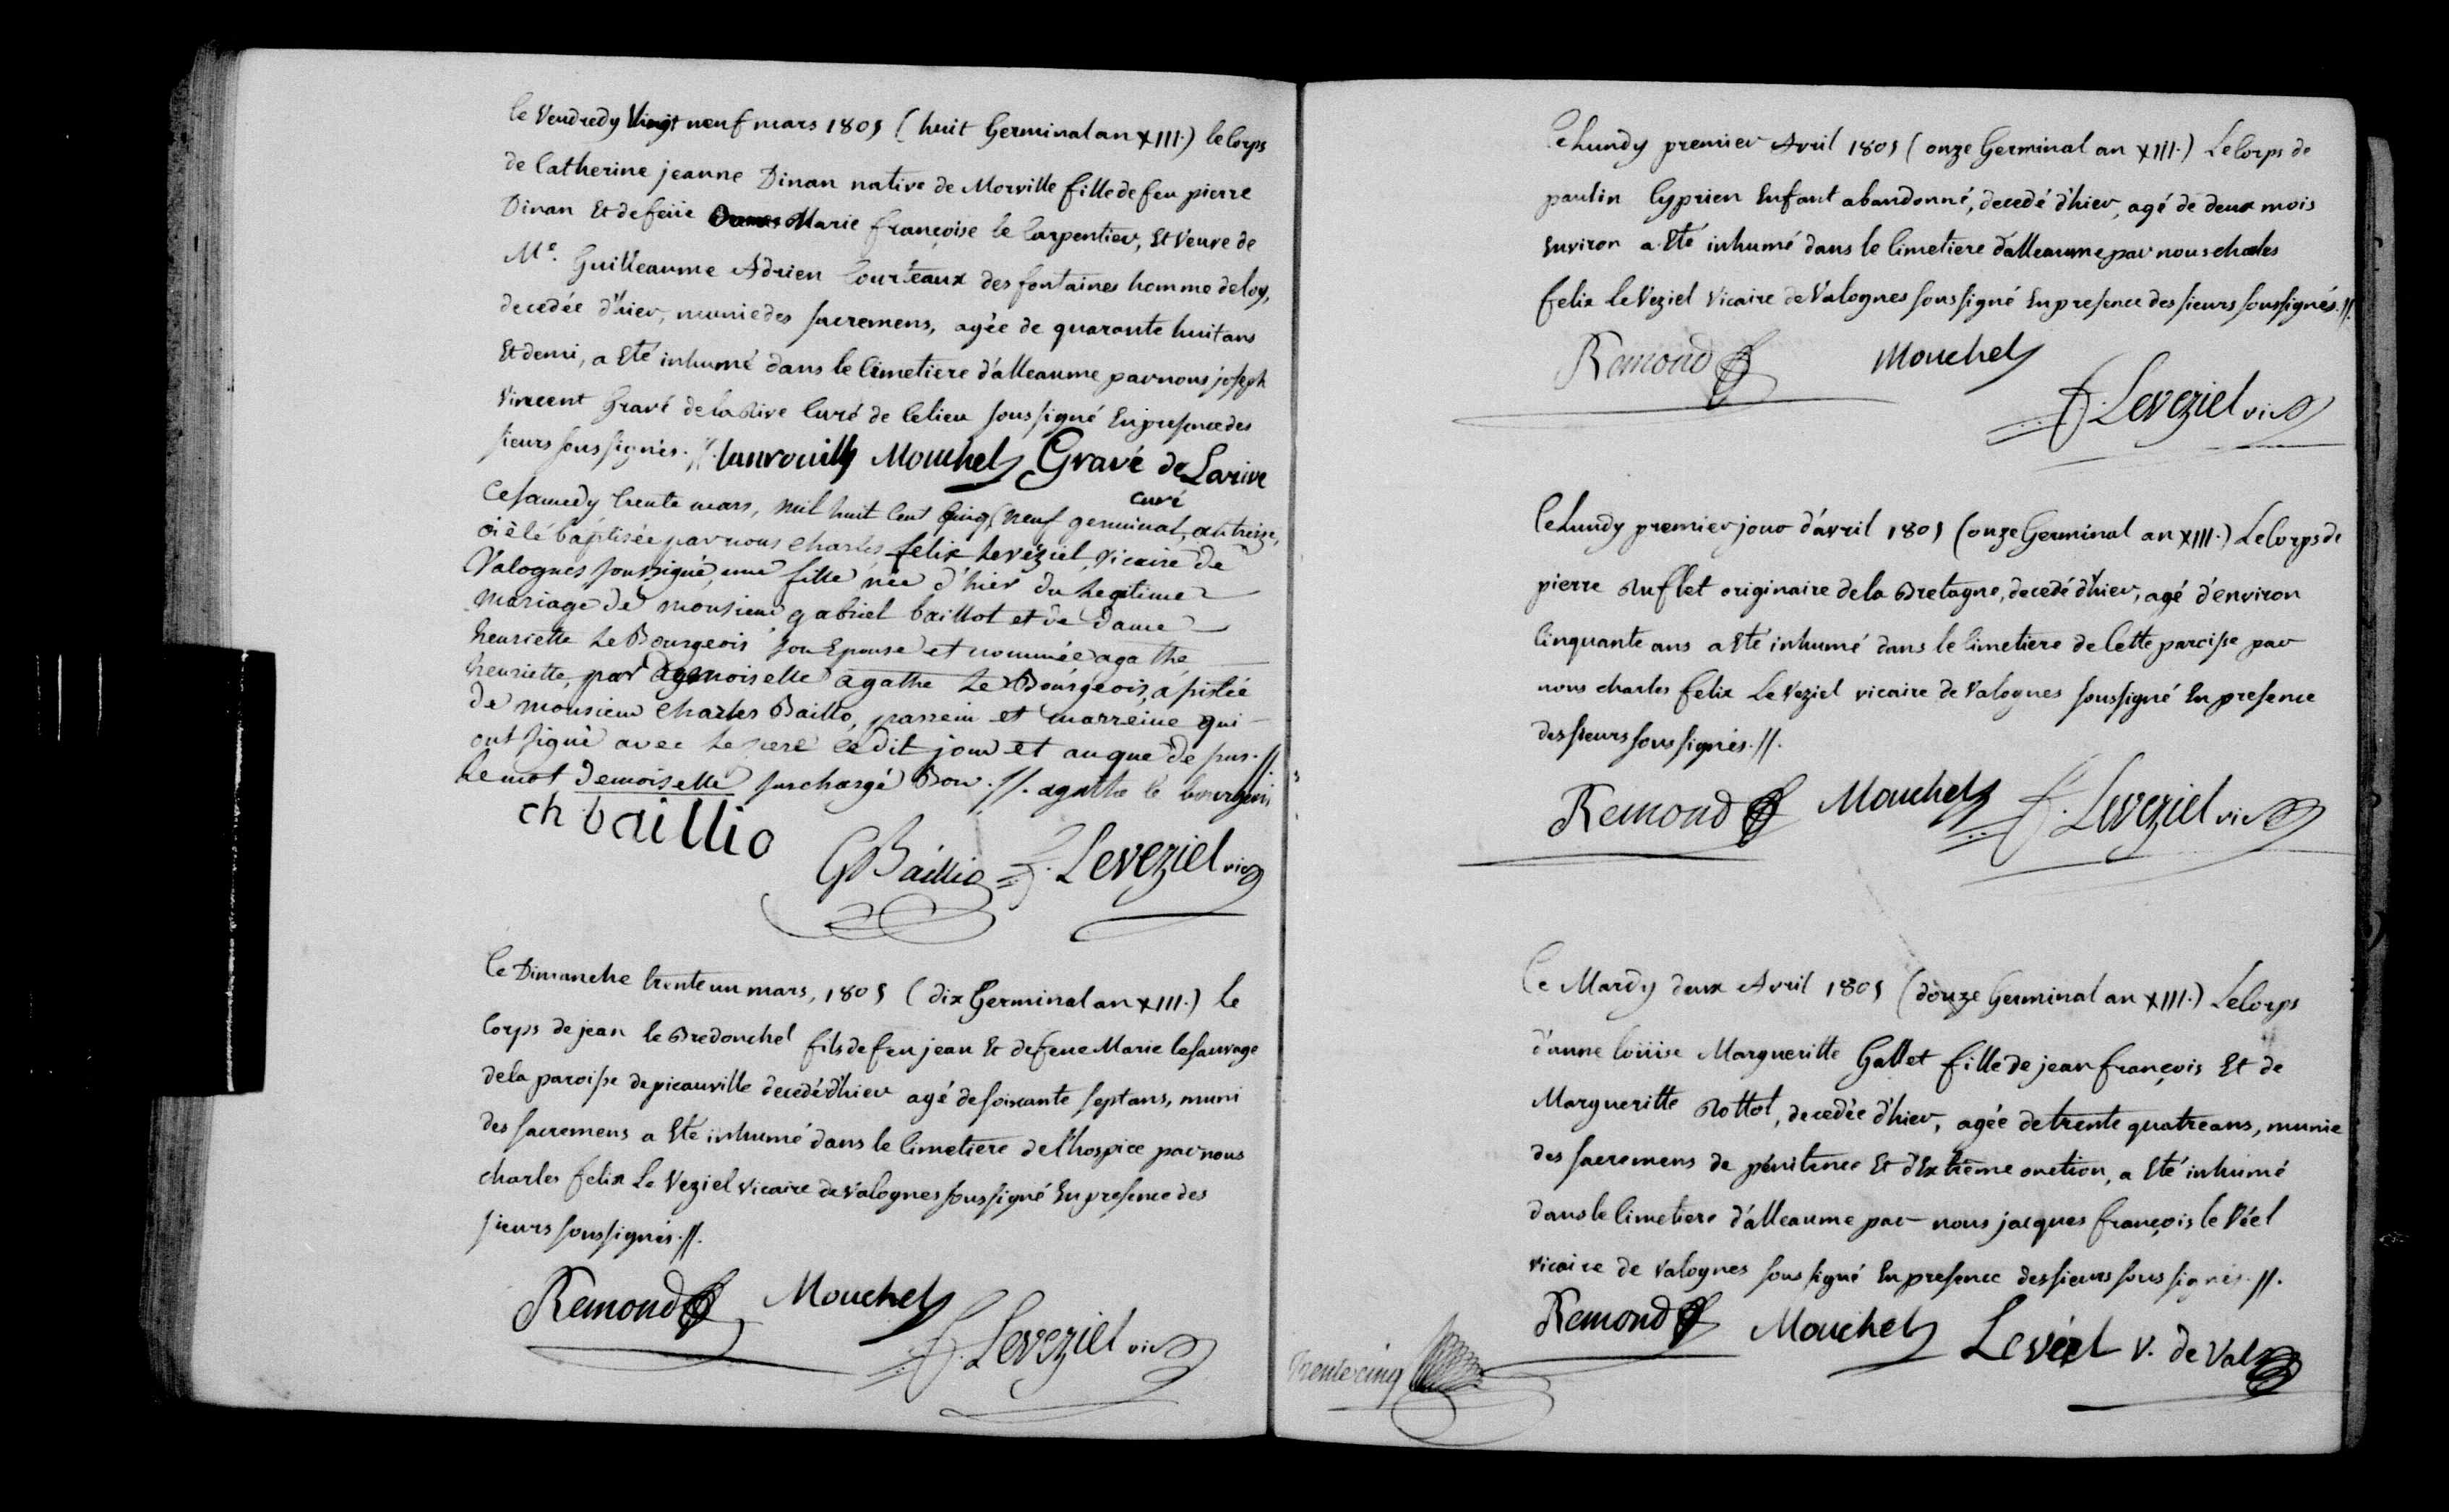 le Vendredy Vingt neuf mars 1805 (huit Germinal an XIII.) le Corps
de Catherine jeanne Dinan native de Morville fille de feu pierre
Dinan Et de feüe Marie françoise le Carpentier, Et Veuve de
Me. Guilleaume Adrien Courteaux des fontaines homme de loy,
decedée d'hier, munie des sacremens, agée de quarante huit ans
Et demi, a Eté inhumé dans le Cimetiere d'alleaume par nous joseph
Vincent Gravé de la Rive Curé de Ce lieu soussigné En presence des
sieurs soussignés.//. Mouchel Gravé de Larive
curé
Ce samedy trente mars, mil huit Cent Cinq (neuf germinal, an treize,
a été baptisée par nous Charles felix Le véziel, vicaire de
Valognes soussigné, une fille née d'hier du Legitime
mariage de monsieur gabriel baillot et de dame
henriette Le Bourgeois son Epouse et nommée agathe
henriette, par demoiselle agathe Le Bourgeois, assistée
de monsieur Charles Baillo, parrein et marreine qui
ont signé avec Le pere Ce dit jour et an que de sus.//
Le mot demoiselle surchargé Bon.//. agathe le bourgeois
ch baillio
G Baillio f. Leveziel vic
Ce Dimanche trente un mars, 1805 (dix Germinal an XIII.) le
Corps de jean le Bredonchel fils de feu jean Et de feue Marie le sauvage
de la paroisse de picauville decedé d'hier agé de soixante sept ans, muni
des sacremens a Eté inhumé dans le Cimetiere de l'hospice par nous
charles felix Le Veziel vicaire de Valognes soussigné En presence des
sieurs soussignés.//.
Remond Mouchel
f. Leveziel vic
Ce Lundy premier Avril 1805 (onze Germinal an XIII.) Le Corps de
paulin Cyprien Enfant abandonné, decedé d'hier, agé de deux mois
Environ a Eté inhumé dans le Cimetiere d'alleaume par nous charles
felix Le Veziel Vicaire de Valognes soussigné En presence des sieurs soussignés.//.
Remond Mouchel
f. Leveziel vic
Ce Lundy premier jour d'avril 1805 (onze Germinal an XIII.) Le Corps de
pierre Ruflet originaire de la Bretagne, decedé d'hier, agé d'environ
Cinquante ans a Eté inhumé dans le Cimetiere de Cette paroisse par
nous charles felix Le Veziel vicaire de Valognes soussigné En presence
des sieurs soussignés.//.
Remond Mouchel f. Leveziel vic
Ce Mardy deux Avril 1805 (douze Germinal an XIII.) Le Corps
d'anne loüise Margueritte Gallet fille de jean françois Et de
Margueritte Rottot, decedée d'hier, agée de trente quatre ans, munie
des sacremens de pénitence Et d'Extrême onction, a Eté inhumé
dans le Cimetiere d'alleaume par nous jacques françois le Véel
vicaire de Valognes soussigné En presence des sieurs soussignés.//.
Remond Mouchel Levéel V. de Val
trente cinq